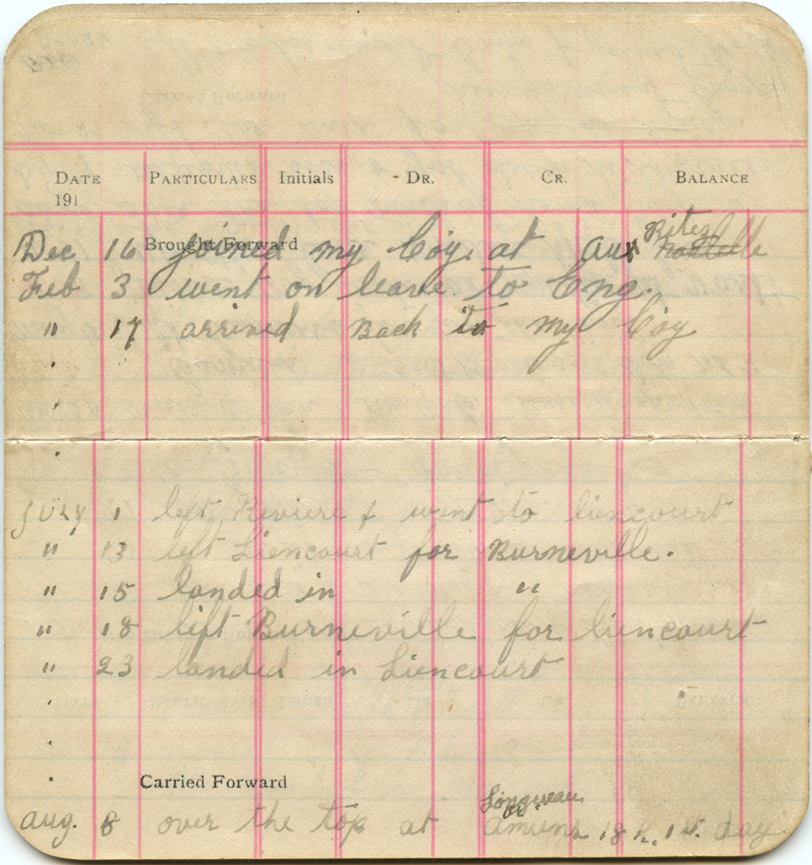 DATE 191 PARTICULARS Initials DR. CR. BALANCE
Brought Forward
Dec 16 joined my Coy. at aux Rites
Feb 3 went on leave to Eng.
" 17 arrived Back to my Coy
July 1 left Riviere & went to Liencourt
" 13 left Liencourt for Burneville.
" 15 landed in "
" 18 left Burneville for Liencourt
" 23 landed in Liencourt
Carried Forward
Longueau or
Aug. 8 over the top at Amiens 18 K. 1st. day